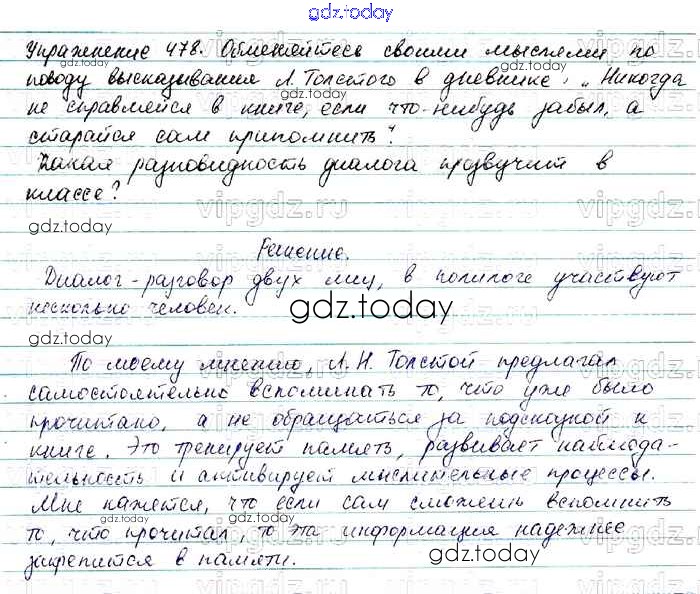 gdz.today
Упражнение 478. Обменяйтесь своими мыслями по
gdz.today
поводу высказывания Л. Толстого в дневнике: „Никогда
не справляйся в книге, если что-нибудь забыл, а
старайся сам припомнить".
gdz.today
Какая разновидность диалога прозвучит в
классе?
vipgdz.ru
gdz.today
Решение.
Диалог - разговор двух лиц, в полилоге участвуют
несколько человек.
gdz.today
vipgdz.ru
gdz.today
По моему мнению, Л. Н. Толстой предлагал
самостоятельно вспоминать то, что уже было
прочитано, а не обращаться за подсказкой к
книге. Это тренирует память, развивает наблюда-
тельность и активирует мыслительные процессы.
Мне кажется, что если сам сможешь вспомнить
gdz.today
gdz.today
то, что прочитал, то эта информация надежнее
закрепится в памяти.
gdz.today
vipgdz.ru